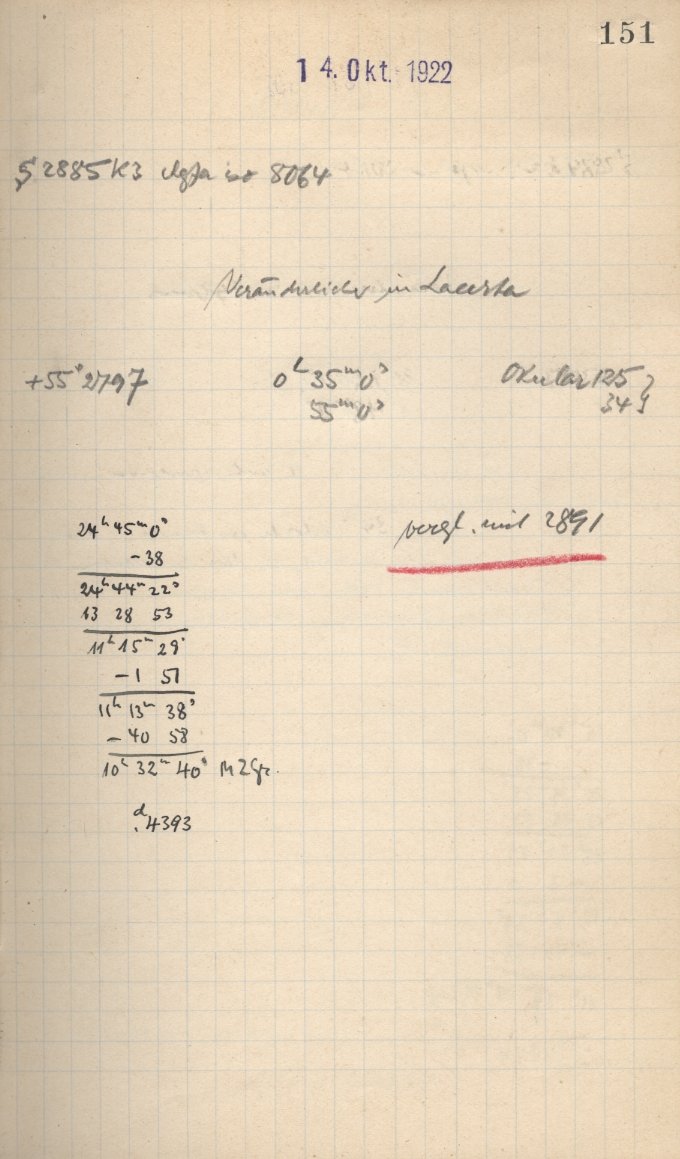 151
14. Okt. 1922
S 2885 K3 Agfa iso 8064
Veränderlicher in Lacerta
+55° 2797
0ʰ 35ᵐ 0ˢ
55ᵐ 0ˢ
Okular 125
34
24ʰ 45ᵐ 0ˢ
-38
24ʰ 44ᵐ 22ˢ
13 28 53
11ʰ 15ᵐ 29ˢ
-1 51
11ʰ 13ᵐ 38ˢ
-40 58
10ʰ 32ᵐ 40ˢ M Z Gr.
vergl. mit 2891
ᵈ.4393